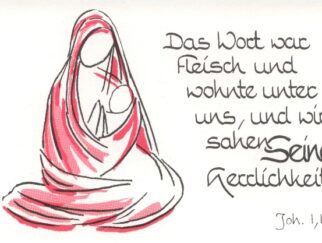 Das Wort war
Fleisch und
wohnte unter
uns, und wir
sahen Seine
Herrlichkeit
Joh. 1,1